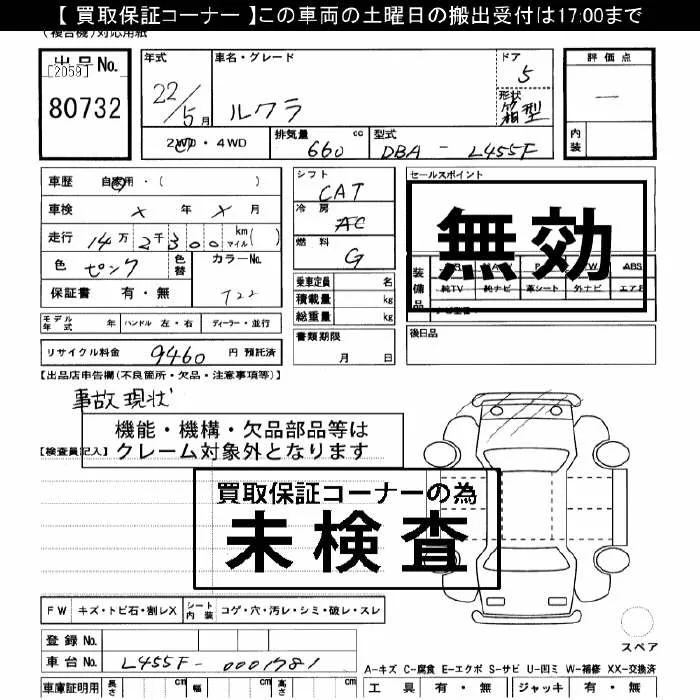 【 買取保証コーナー 】この車両の土曜日の搬出受付は17:00まで
(複合機)対応用紙
出品No. [2059] 80732
年式 22/5月
車名・グレード ルクラ
ドア 5
形状 箱型
評価点 —
内装
2WD・4WD
排気量 660 cc
型式 DBA - L455F
車歴 自家用・( )
車検 × 年 × 月
走行 14万2千300 km マイル( )
色 ピンク 色替 カラーNo. T22
保証書 有・無
シフト CAT
冷房 AC
燃料 G
乗車定員 名
積載量 kg
総重量 kg
セールスポイント
無効
装備品
ABS
純TV 純ナビ 革シート 外ナビ エアB
モデル年式 年 ハンドル 左・右 ディーラー・並行
書類期限 月 日
後日品
リサイクル料金 9460 円 預託済
【出品店申告欄(不良箇所・欠品・注意事項等)】
事故現状
機能・機構・欠品部品等は
クレーム対象外となります
【検査員記入】
買取保証コーナーの為
未検査
FW キズ・トビ石・割レX シート内装 コゲ・穴・汚レ・シミ・破レ・スレ
スペア
登録No.
車台No. L455F-0001781
A-キズ C-腐食 E-エクボ S-サビ U-凹ミ W-補修 XX-交換済
車庫証明用 長さ cm 幅 cm 高さ cm
工具 有・無 ジャッキ 有・無